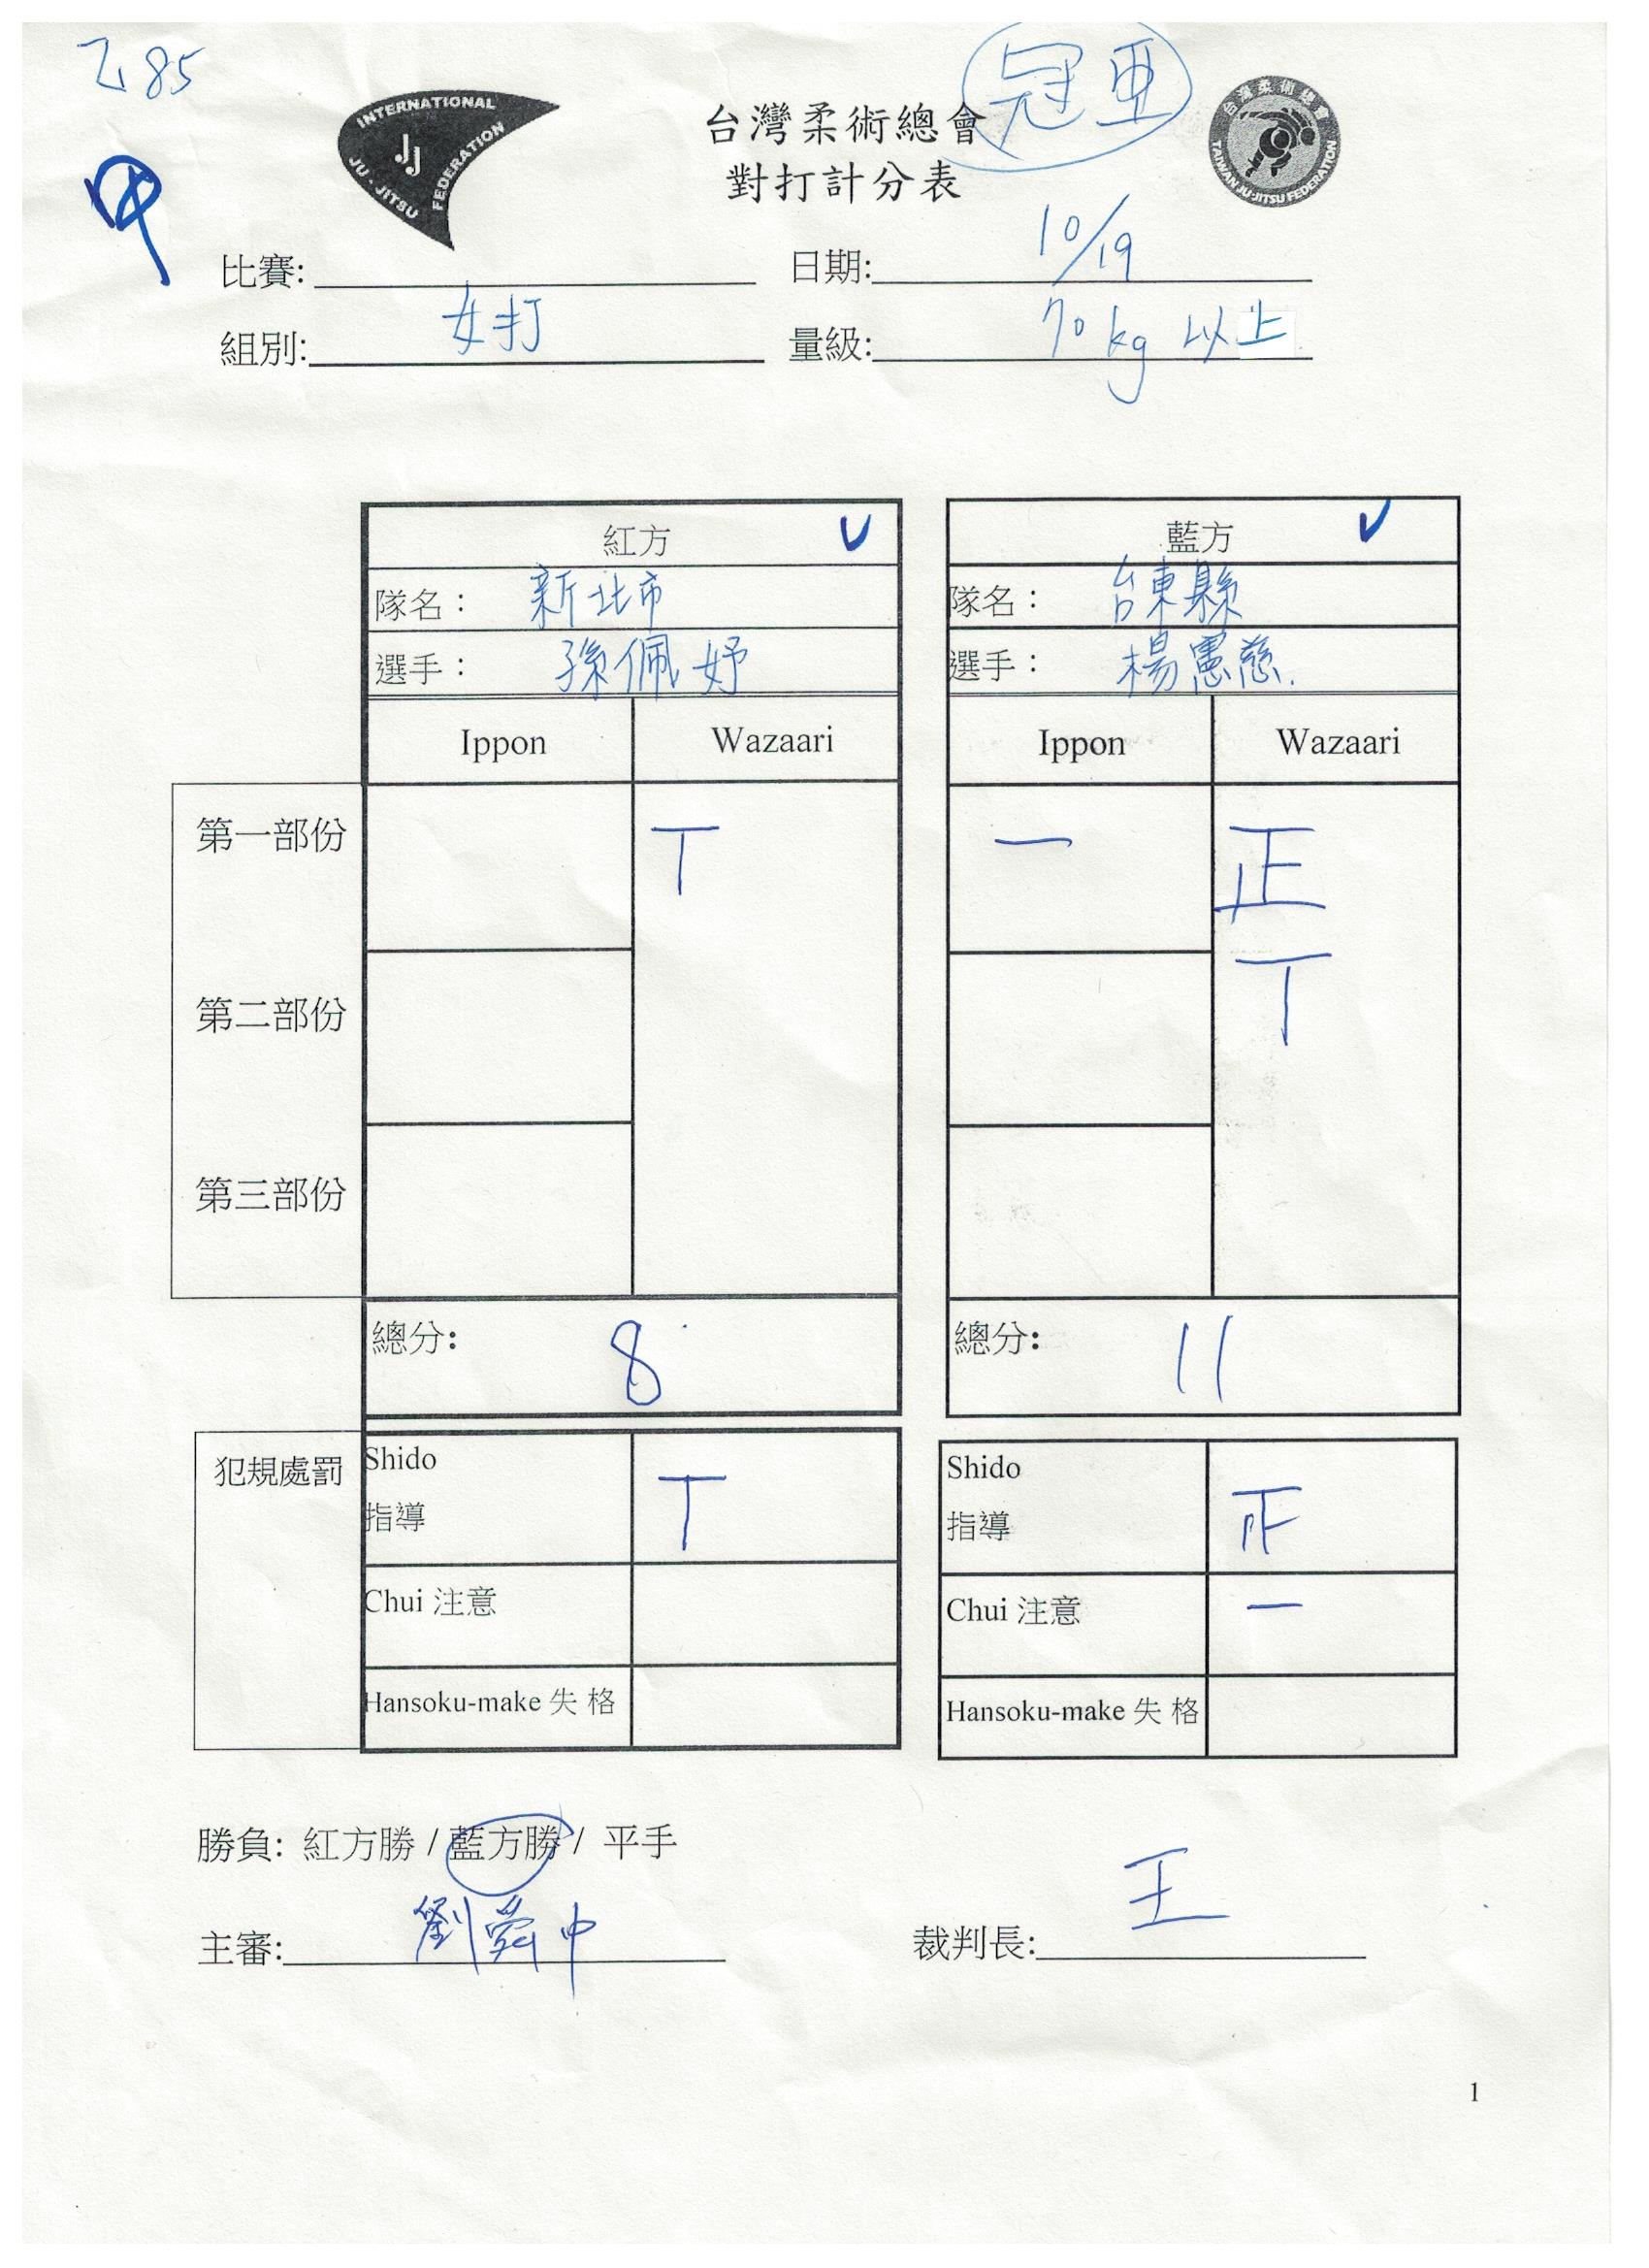 乙85
冠亞
INTERNATIONAL
JJ
JU-JITSU FEDERATION
台灣柔術總會
對打計分表
台灣柔術總會
TAIWAN JU-JITSU FEDERATION
比賽: 日期: 10/19
組別: 女打 量級: 70kg 以上
紅方 藍方
隊名： 新北市 隊名： 台東縣
選手： 孫佩妤 選手： 楊憲慈.
Ippon Wazaari Ippon Wazaari
第一部份 T 一 正
T
第二部份
第三部份
總分: 8 總分: 11
犯規處罰 Shido Shido
指導 T 指導 正
Chui 注意 Chui 注意 一
Hansoku-make 失 格 Hansoku-make 失 格
勝負: 紅方勝 / 藍方勝 / 平手
主審: 劉舜中 裁判長: 王
1